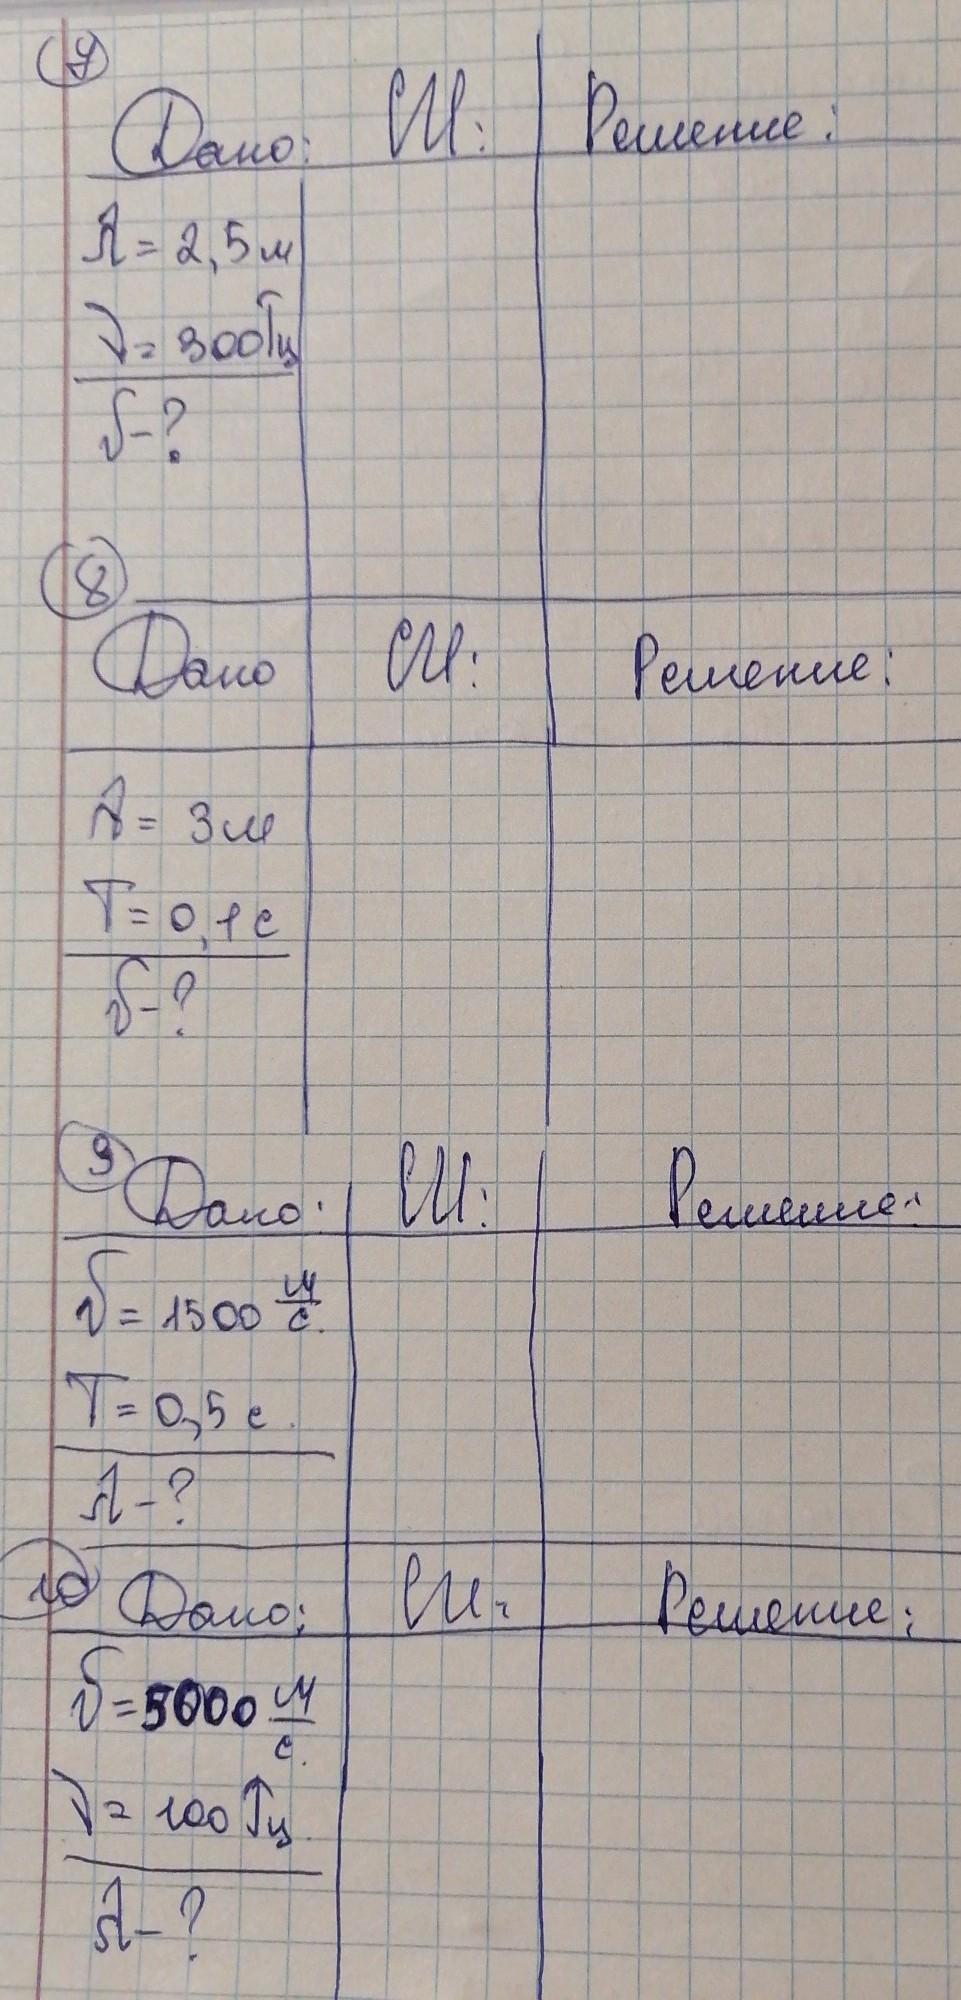 7
Дано: СИ: Решение:
λ = 2,5 м
ν = 300 Гц
υ - ?
8
Дано СИ: Решение:
λ = 3 м
T = 0,1 с
υ - ?
9
Дано: СИ: Решение:
υ = 1500 м/с.
T = 0,5 с.
λ - ?
10
Дано: СИ: Решение:
υ = 5000 м/с.
ν = 100 Гц.
λ - ?